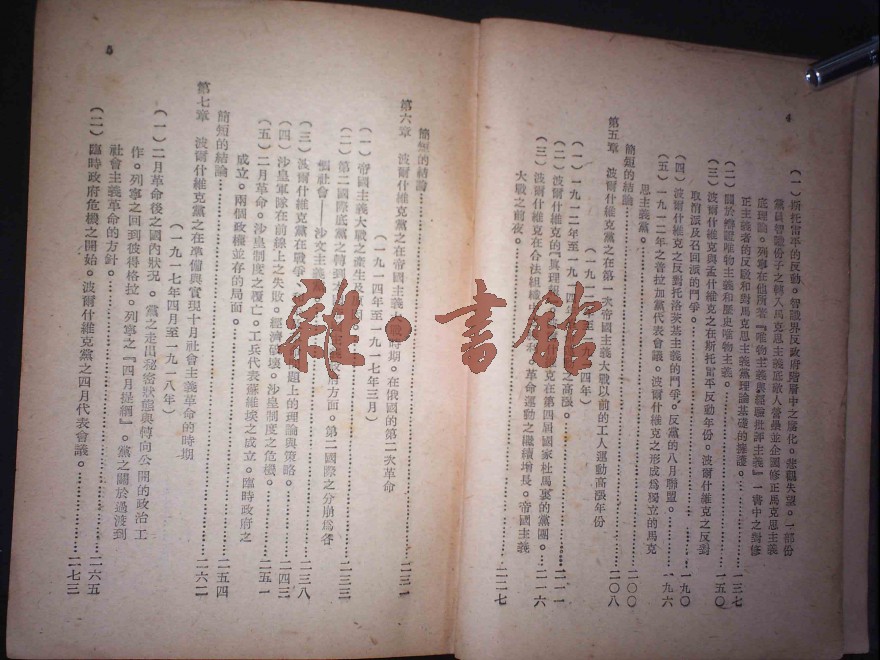 4
(一)斯托雷平的反動。智識界反政府階層中之腐化。悲觀失望。一部份
黨員智識份子之轉入馬克思主義底敵人營壘並企圖修正馬克思主義
底理論。列寧在他所著『唯物主義與經驗批評主義』一書中之對修
正主義者的反駁和對馬克思主義黨理論基礎的擁護。……一三七
(二)關於辯證唯物主義和歷史唯物主義。……一五〇
(三)波爾什維克與孟什維克之在斯托雷平反動年份。波爾什維克之反對
取消派及召回派的鬥爭。……一九〇
(四)波爾什維克之反對托洛茨基主義的鬥爭。反黨的八月聯盟。……一九六
(五)一九一二年之普拉加黨代表會議。波爾什維克之形成為獨立的馬克
思主義黨。……二〇〇
簡短的結論……二〇八
第五章 波爾什維克黨之在第一次帝國主義大戰以前的工人運動高漲年份
(一九一二 四年)
(一)一九一二年至一九一四 之高漲。……二一一
(二)波爾什維克的『真理報 ……二一六
(三)波爾什維克在合法組織 維克在第四屆國家杜馬裏的黨團。
革命運動之繼續增長。帝國主義
大戰之前夜。……二二七
簡短的結論……二三一
第六章 波爾什維克黨之在帝國主義大戰時期。在俄國的第二次革命
(一九一四年至一九一七年三月)
(一)帝國主義大戰之產生及 ……二三三
(二)第二國際底黨之轉到 政府方面。第二國際之分崩為各
個社會——沙文主義 ……二三八
(三)波爾什維克黨在戰爭、和 題上的理論與策略。……二四三
(四)沙皇軍隊在前線上之失敗。經濟破壞。沙皇制度之危機。……二五一
(五)二月革命。沙皇制度之覆亡。工兵代表蘇維埃之成立。臨時政府之
成立。兩個政權並存的局面。……二五四
簡短的結論……二六二
第七章 波爾什維克黨之在準備與實現十月社會主義革命的時期
(一九一七年四月至一九一八年)
(一)二月革命後之國內狀況。黨之走出秘密狀態與轉向公開的政治工
作。列寧之回到彼得格拉。列寧之『四月提綱』。黨之關於過渡到
社會主義革命的方針。……二六五
(二)臨時政府危機之開始。波爾什維克黨之四月代表會議。……二七三
5
雜·書館